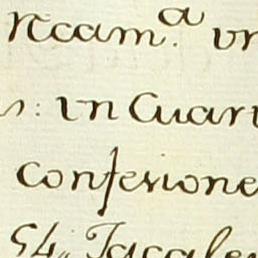 ncam.ª vn
s: vn Cuart
confesione
54,, Jacale